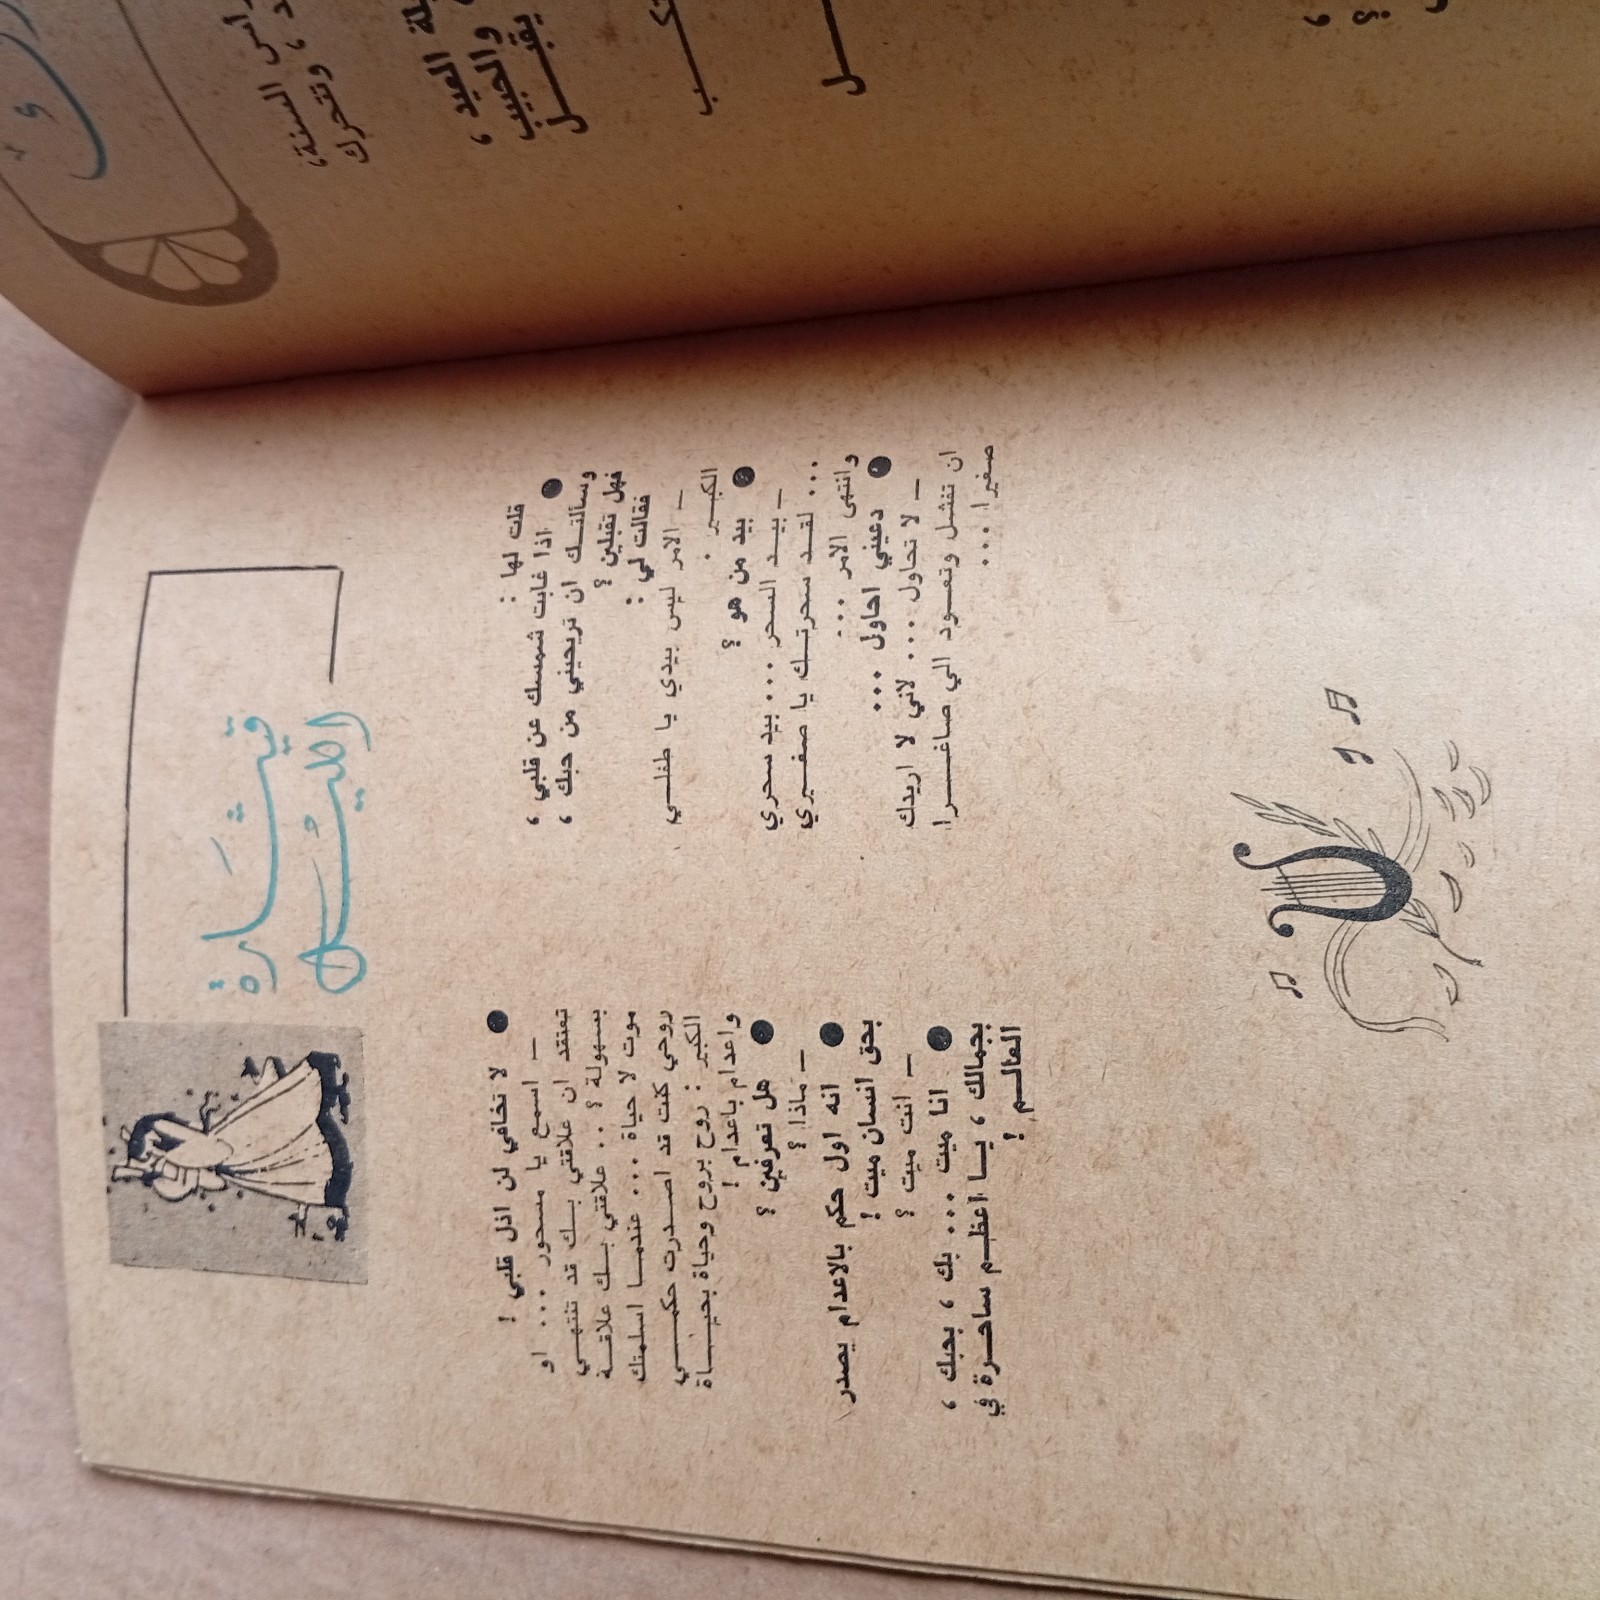 قيثارة
الليل
قلت لها :
● اذا غابت شمسك عن قلبي ،
وسألتك ان تريحيني من حبك ،
فهل تقبلين ؟
فقالت لي :
— الامر ليس بيدي يا طفلي
الكبير .
● بيد من هو ؟
— بيد السحر ... بيد سحري
... لقد سحرتك يا صغيري
وانتهى الامر ...
● دعيني احاول ...
— لا تحاول ... لاني لا اريدك
ان تفشل وتعود الي صاغرا
صغيرا ...
● لا تخافي لن اذل قلبي !
— اسمع يا مسحور ... او
تعتقد ان علاقتي بك قد تنتهي
بسهولة ؟ .. علاقتي بك علاقة
موت لا حياة ... عندما اسلمتك
روحي كنت قد اصدرت حكمي
الكبير : روح بروح وحياة بحياة
واعدام باعدام !
● هل تعرفين ؟
— ماذا ؟
● انه اول حكم بالاعدام يصدر
بحق انسان ميت !
— انت ميت ؟
● انا ميت ... بك ، بحبك ،
بجمالك ، يا اعظم ساحرة في
العالم !
راس السنة،
، وتتحرك
لة العيد ،
والحبيب
يقبل